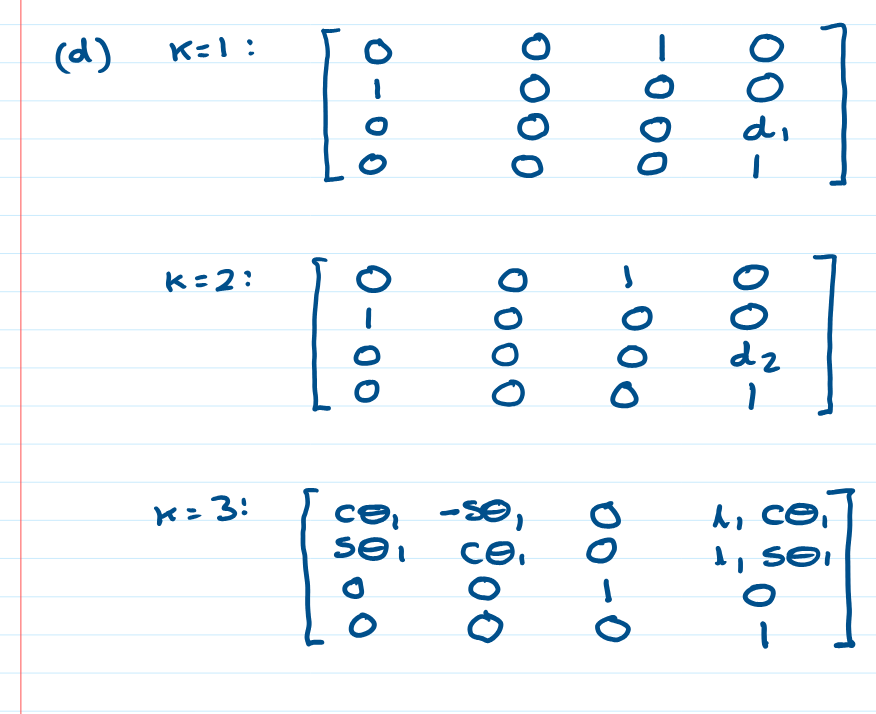 (d) K=1: [ 0 0 1 0
1 0 0 0
0 0 0 d₁
0 0 0 1 ]
K=2: [ 0 0 1 0
1 0 0 0
0 0 0 d₂
0 0 0 1 ]
K=3: [ cθ₁ -sθ₁ 0 l₁ cθ₁
sθ₁ cθ₁ 0 l₁ sθ₁
0 0 1 0
0 0 0 1 ]